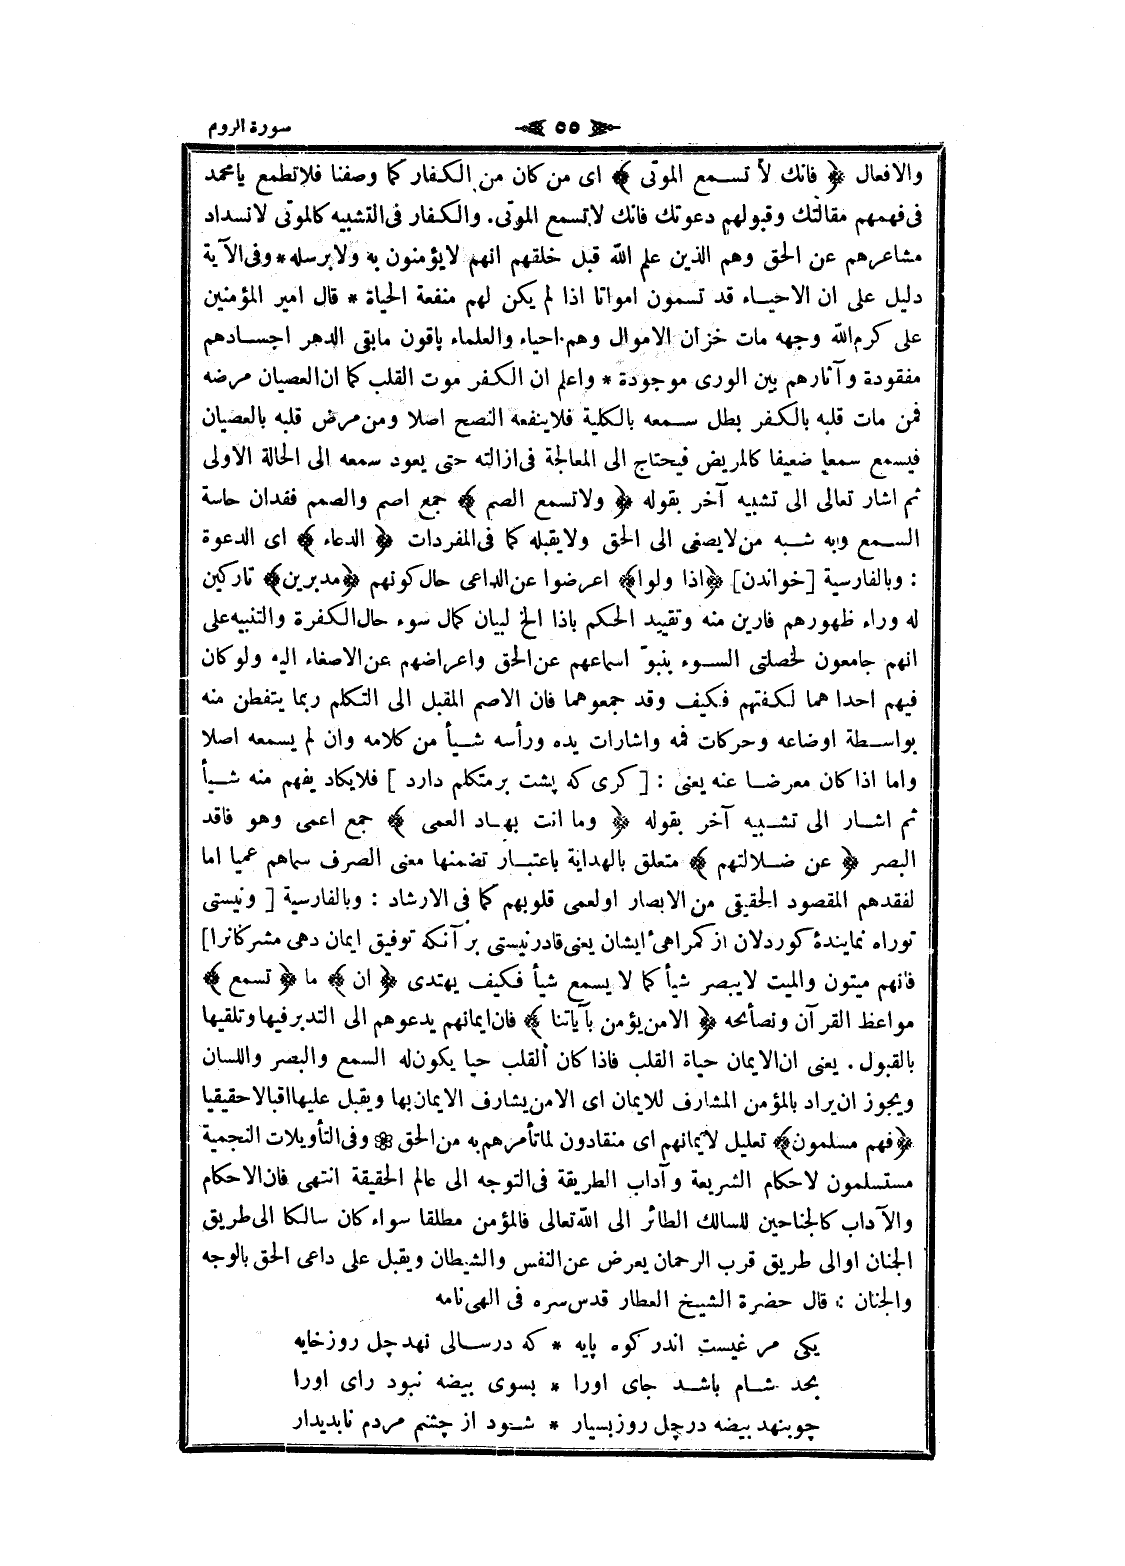 سورة الروم ٥٥
والافعال ﴿ فانك لا تسمع الموتى ﴾ اى من كان من الكفار كما وصفنا فلاتطمع يامحمد
فى فهمهم مقالتك وقبولهم دعوتك فانك لاتسمع الموتى. والكفار فى التشبيه كالموتى لانسداد
مشاعرهم عن الحق وهم الذين علم الله قبل خلقهم انهم لايؤمنون به ولا برسله * وفى الآية
دليل على ان الاحياء قد تسمون امواتا اذا لم يكن لهم منفعة الحياة * قال امير المؤمنين
على كرم الله وجهه مات خزان الاموال وهم احياء والعلماء باقون مابقى الدهر اجسادهم
مفقودة وآثارهم بين الورى موجودة * واعلم ان الكفر موت القلب كما ان العصيان مرضه
فمن مات قلبه بالكفر بطل سمعه بالكلية فلاينفعه النصح اصلا ومن مرض قلبه بالعصيان
فيسمع سمعا ضعيفا كالمريض فيحتاج الى المعالجة فى ازالته حتى يعود سمعه الى الحالة الاولى
ثم اشار تعالى الى تشبيه آخر بقوله ﴿ ولاتسمع الصم ﴾ جمع اصم والصمم فقدان حاسة
السمع وبه شبه من لايصغى الى الحق ولايقبله كما فى المفردات ﴿ الدعاء ﴾ اى الدعوة
: وبالفارسية [خواندن] ﴿اذا ولوا﴾ اعرضوا عن الداعى حال كونهم ﴿مدبرين﴾ تاركين
له وراء ظهورهم فارين منه وتقييد الحكم باذا الخ لبيان كمال سوء حال الكفرة والتنبيه على
انهم جامعون لخصلتى السوء ينبوّ اسماعهم عن الحق واعراضهم عن الاصغاء اليه ولوكان
فيهم احدا هما لكفتهم فكيف وقد جمعوهما فان الاصم المقبل الى التكلم ربما يتفطن منه
بواسطة اوضاعه وحركات فمه واشارات يده ورأسه شيأ من كلامه وان لم يسمعه اصلا
واما اذا كان معرضا عنه يعنى : [ كرى كه پشت برمتكلم دارد ] فلايكاد يفهم منه شيأ
ثم اشار الى تشبيه آخر بقوله ﴿ وما انت بهاد العمى ﴾ جمع اعمى وهو فاقد
البصر ﴿ عن ضلالتهم ﴾ متعلق بالهداية باعتبار تضمنها معنى الصرف سماهم عميا اما
لفقدهم المقصود الحقيقى من الابصار اولعمى قلوبهم كما فى الارشاد : وبالفارسية [ ونيستى
توراه نمايندۀ كوردلان از كمراهىٔ ايشان يعنى قادر نيستى بر آنكه توفيق ايمان دهى مشركانرا]
فانهم ميتون والميت لايبصر شيأ كما لا يسمع شيأ فكيف يهتدى ﴿ ان ﴾ ما ﴿ تسمع ﴾
مواعظ القرآن ونصائحه ﴿ الا من يؤمن بآياتنا ﴾ فان ايمانهم يدعوهم الى التدبر فيها وتلقيها
بالقبول . يعنى ان الايمان حياة القلب فاذا كان القلب حيا يكون له السمع والبصر واللسان
ويجوز ان يراد بالمؤمن المشارف للايمان اى الا من يشارف الايمان بها ويقبل عليها اقبالا حقيقيا
﴿فهم مسلمون﴾ تعليل لايمانهم اى منقادون لما تأمرهم به من الحق ❁ وفى التأويلات النجمية
مستسلمون لاحكام الشريعة وآداب الطريقة فى التوجه الى عالم الحقيقة انتهى فان الاحكام
والآداب كالجناحين للسالك الطائر الى الله تعالى فالمؤمن مطلقا سواء كان سالكا الى طريق
الجنان اوالى طريق قرب الرحمان يعرض عن النفس والشيطان ويقبل على داعى الحق بالوجه
والجنان : قال حضرة الشيخ العطار قدس سره فى الهى نامه
يكى مرغيست اندر كوه پايه * كه درسالى نهد چل روز خايه
بحد شام باشد جاى اورا * بسوى بيضه نبود راى اورا
چو بنهد بيضه در چل روز بسيار * شود از چشم مردم ناپديدار